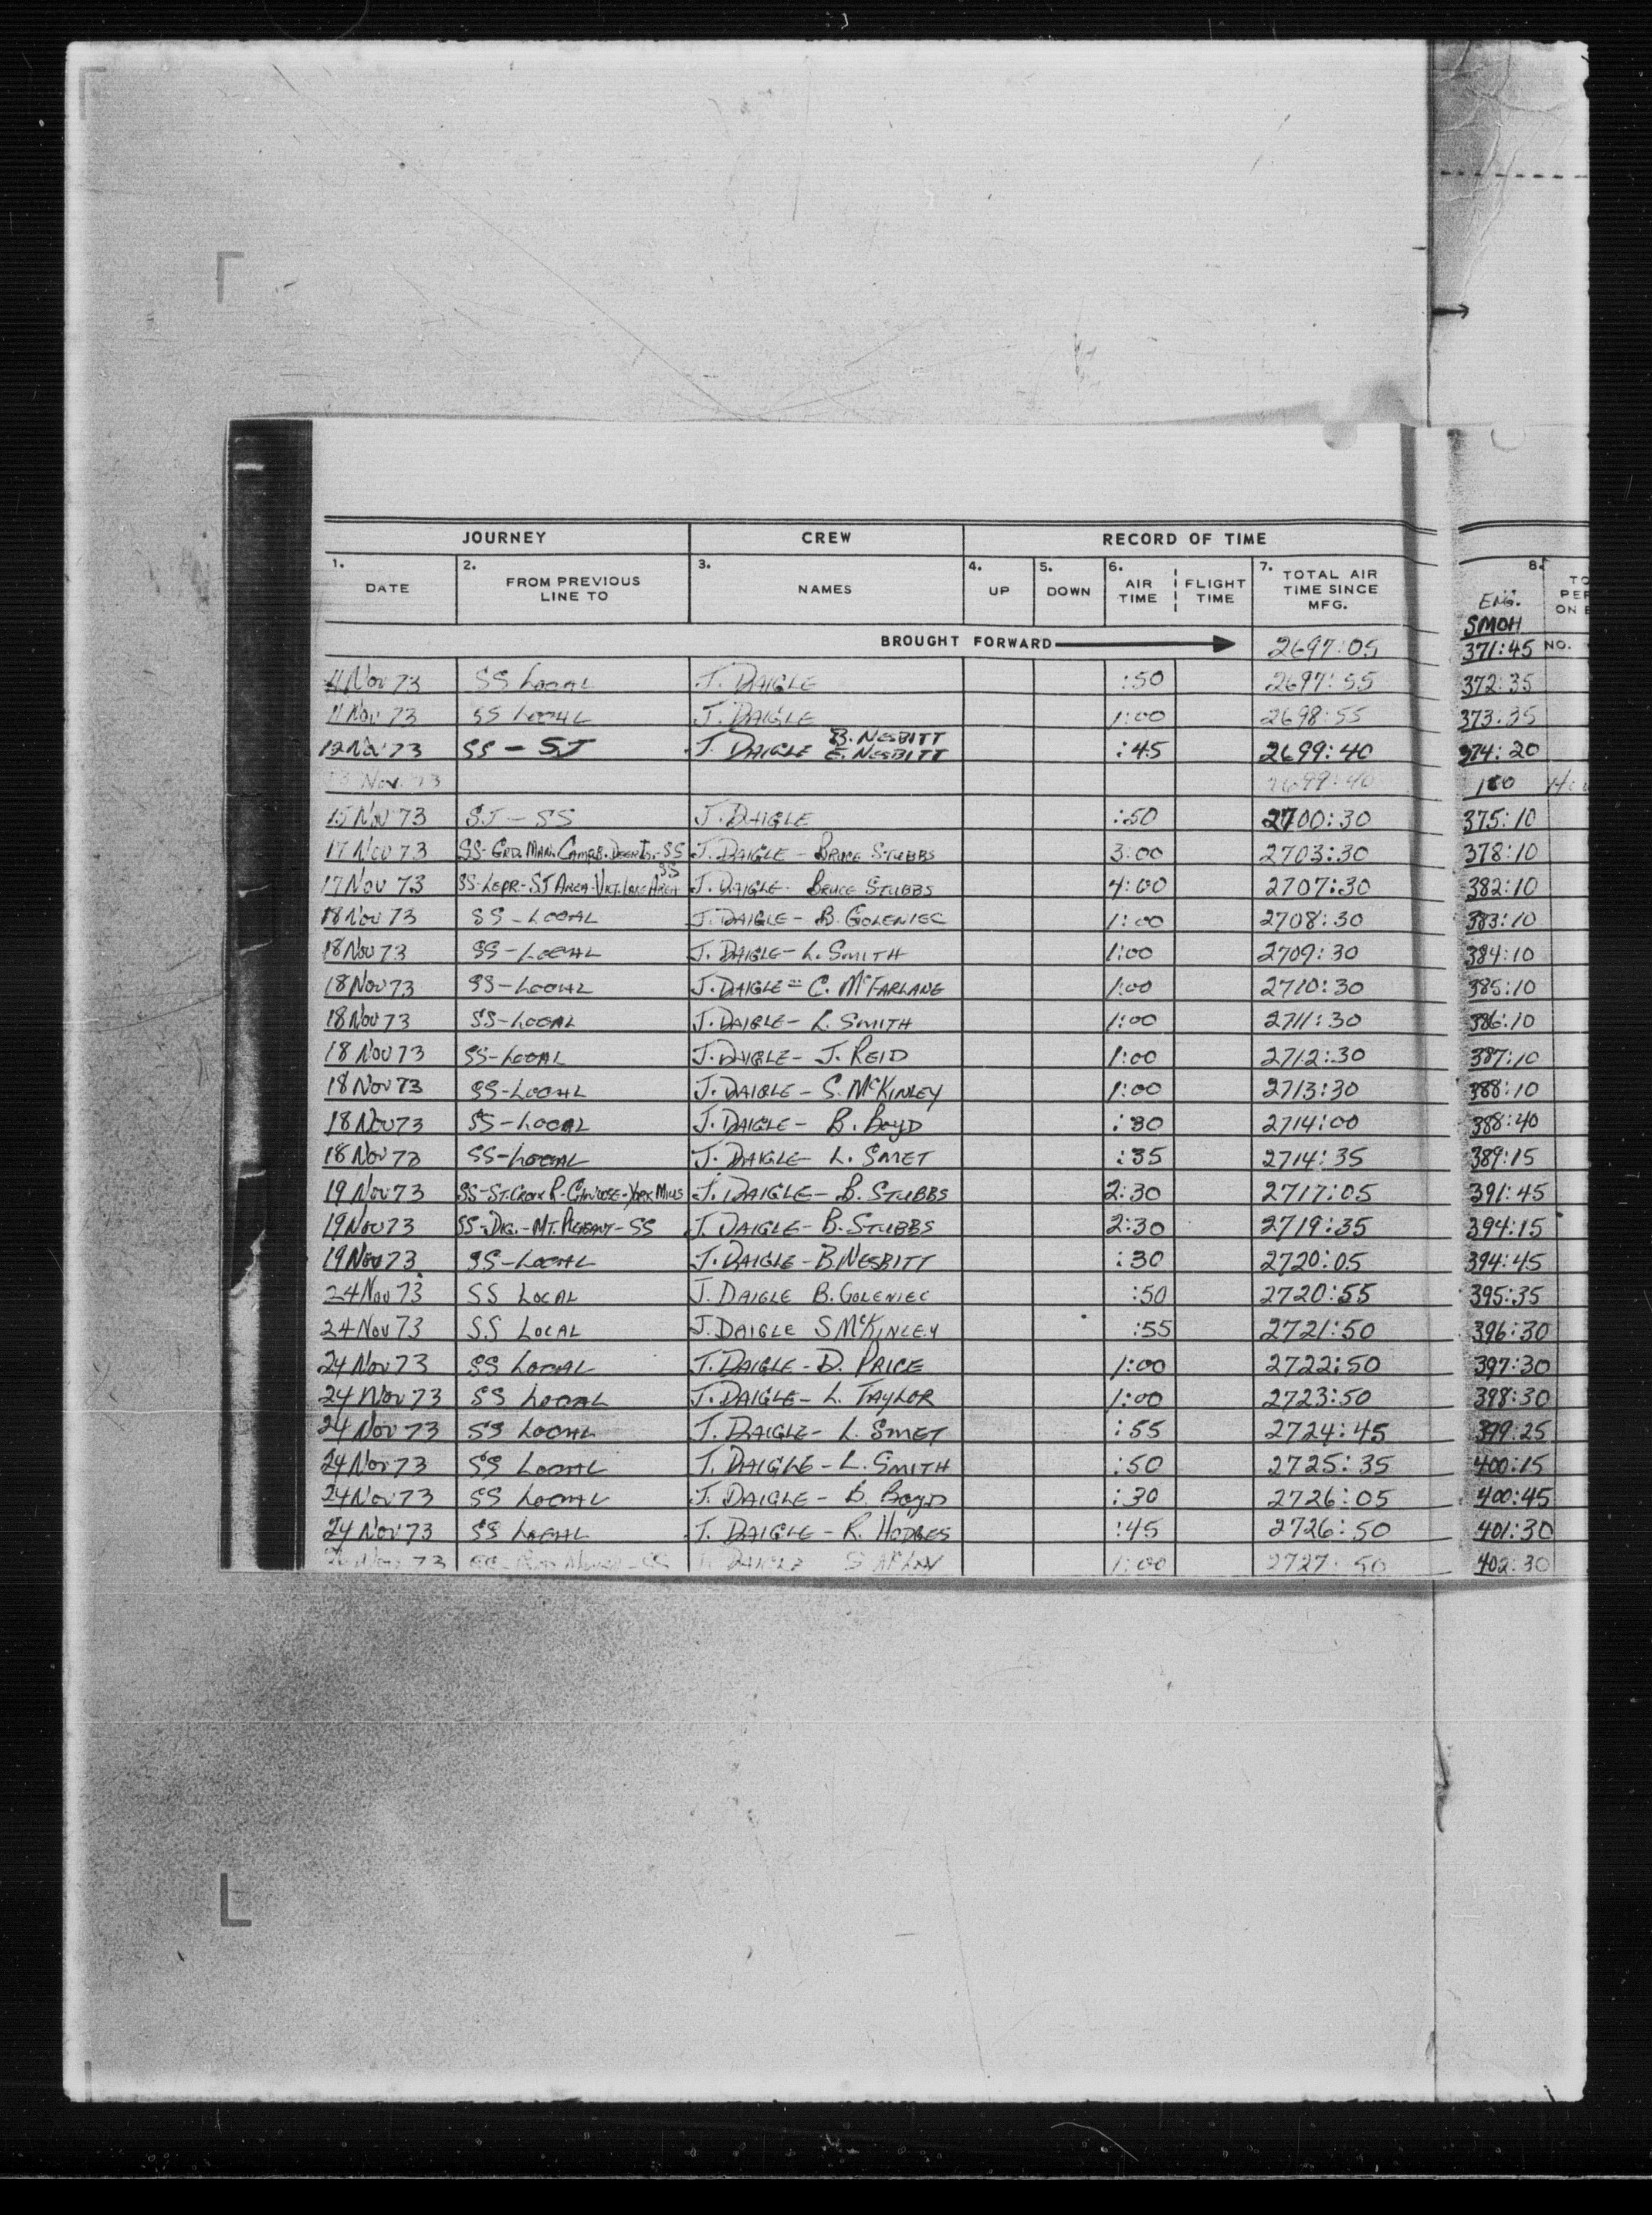 JOURNEY CREW RECORD OF TIME
1. 2. 3. 4. 5. 6. 7. 8.
DATE FROM PREVIOUS LINE TO NAMES UP DOWN AIR TIME FLIGHT TIME TOTAL AIR TIME SINCE MFG. ENG. SMOH
BROUGHT FORWARD 2697:05 371:45 NO.
11 Nov 73 SS LOCAL J. DAIGLE :50 2697:55 372:35
11 Nov 73 SS LOCAL J. DAIGLE 1:00 2698:55 373:35
12 Nov 73 SS - SJ J. DAIGLE B. NESBITT E. NESBITT :45 2699:40 374:20
13 Nov. 73 2699:40 100
15 Nov 73 SJ - SS J. DAIGLE :50 2700:30 375:10
17 Nov 73 SS- GRD. MAN. CAMPB. DEER IS. - SS J. DAIGLE - BRUCE STUBBS 3:00 2703:30 378:10
17 Nov 73 SS- LEPR. - SJ AREA - LAKE AREA SS J. DAIGLE - BRUCE STUBBS 4:00 2707:30 382:10
18 Nov 73 SS - LOCAL J. DAIGLE - B. GOLENIEC 1:00 2708:30 383:10
18 Nov 73 SS - LOCAL J. DAIGLE - L. SMITH 1:00 2709:30 384:10
18 Nov 73 SS - LOCAL J. DAIGLE = C. McFARLANE 1:00 2710:30 385:10
18 Nov 73 SS - LOCAL J. DAIGLE - L. SMITH 1:00 2711:30 386:10
18 Nov 73 SS - LOCAL J. DAIGLE - J. REID 1:00 2712:30 387:10
18 Nov 73 SS - LOCAL J. DAIGLE - S. McKINLEY 1:00 2713:30 388:10
18 Nov 73 SS - LOCAL J. DAIGLE - B. BOYD :30 2714:00 388:40
18 Nov 73 SS - LOCAL J. DAIGLE - L. SMET :35 2714:35 389:15
19 Nov 73 SS - ST. CROIX R. - CANOOSE - YORK MILLS J. DAIGLE - B. STUBBS 2:30 2717:05 391:45
19 Nov 73 SS - DIG. - MT. PLEASANT - SS J. DAIGLE - B. STUBBS 2:30 2719:35 394:15
19 Nov 73 SS - LOCAL J. DAIGLE - B. NESBITT :30 2720:05 394:45
24 Nov 73 SS LOCAL J. DAIGLE B. GOLENIEC :50 2720:55 395:35
24 Nov 73 SS LOCAL J. DAIGLE S McKINLEY :55 2721:50 396:30
24 Nov 73 SS LOCAL J. DAIGLE - D. PRICE 1:00 2722:50 397:30
24 Nov 73 SS LOCAL J. DAIGLE - L. TAYLOR 1:00 2723:50 398:30
24 Nov 73 SS LOCAL J. DAIGLE - L. SMET :55 2724:45 399:25
24 Nov 73 SS LOCAL J. DAIGLE - L. SMITH :50 2725:35 400:15
24 Nov 73 SS LOCAL J. DAIGLE - B. BOYD :30 2726:05 400:45
24 Nov 73 SS LOCAL J. DAIGLE - R. HODGES :45 2726:50 401:30
73 DAIGLE 1:00 2727:50 402:30